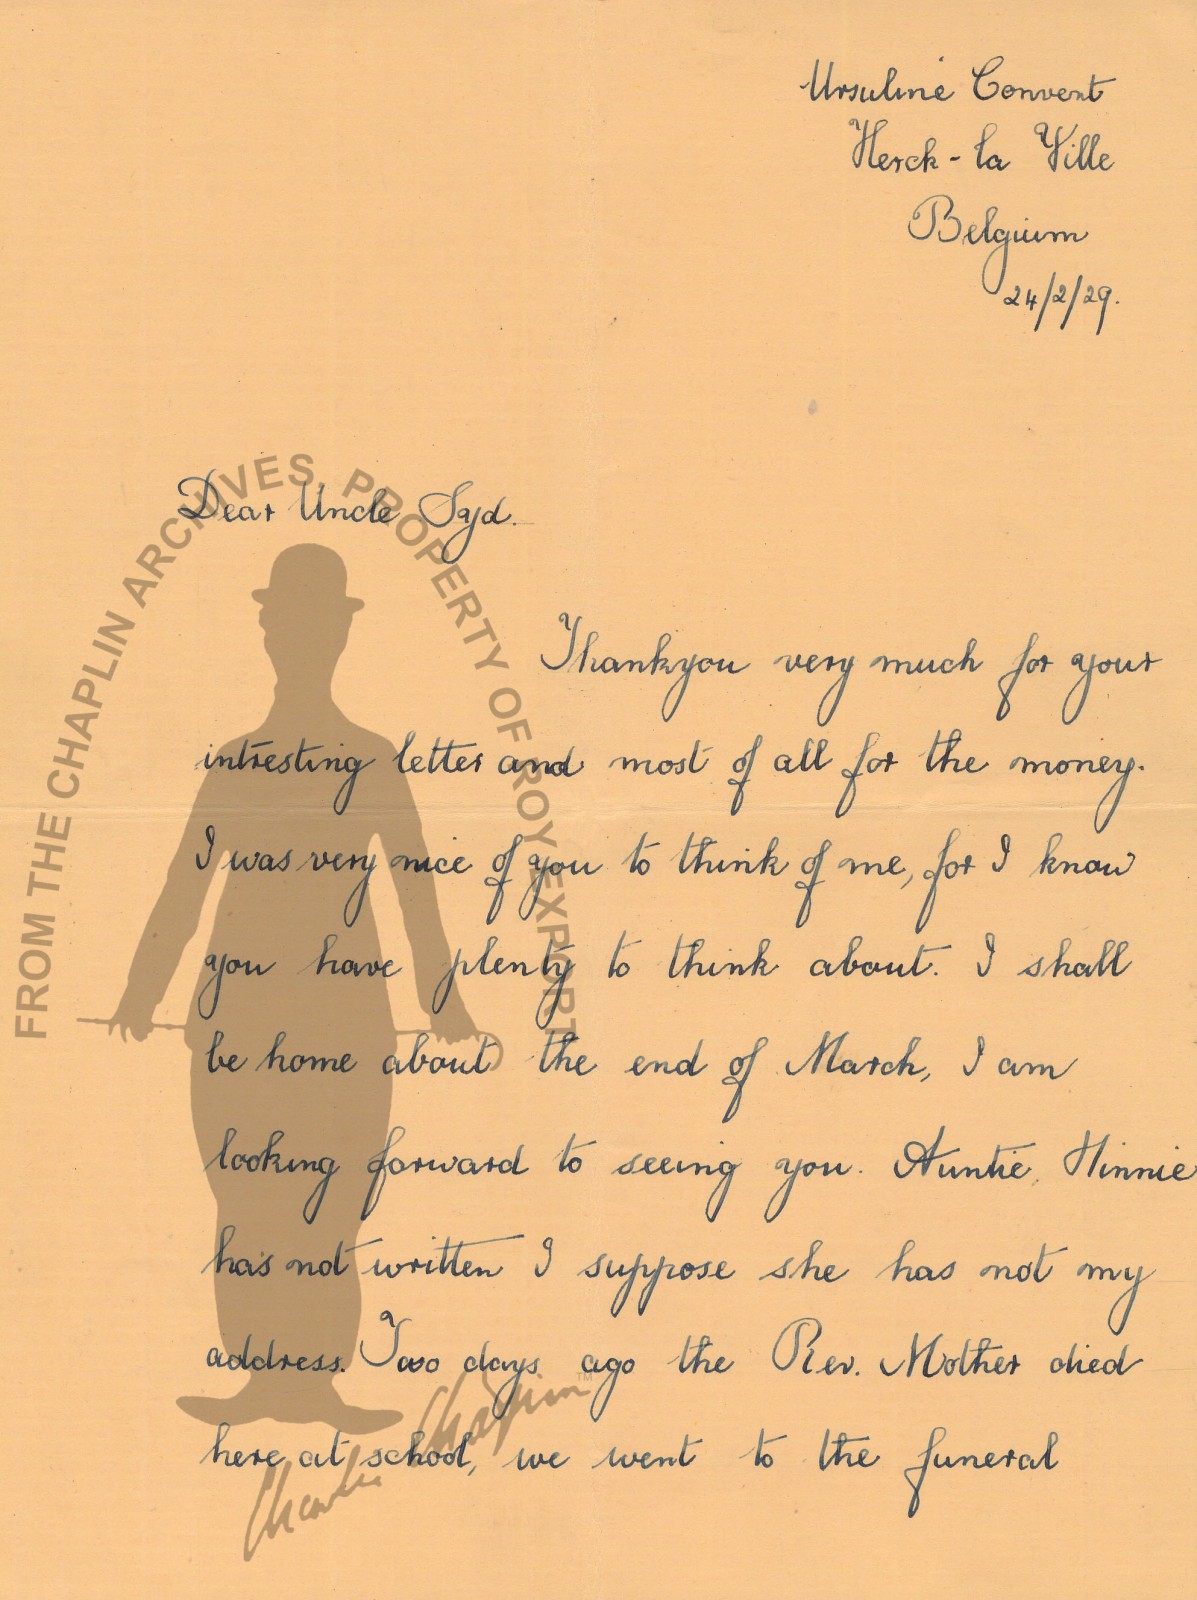 Ursuline Convent
Herck-la Ville
Belgium
24/2/29.
Dear Uncle Syd.
Thankyou very much for your
intresting letter and most of all for the money.
I was very nice of you to think of me, for I know
you have plenty to think about. I shall
be home about the end of March, I am
looking forward to seeing you. Auntie, Hinnie
has not written I suppose she has not my
address. Two days ago the Rev. Mother died
here at school, we went to the funeral
FROM THE CHAPLIN ARCHIVES, PROPERTY OF ROY EXPORT
Charlie Chaplin™